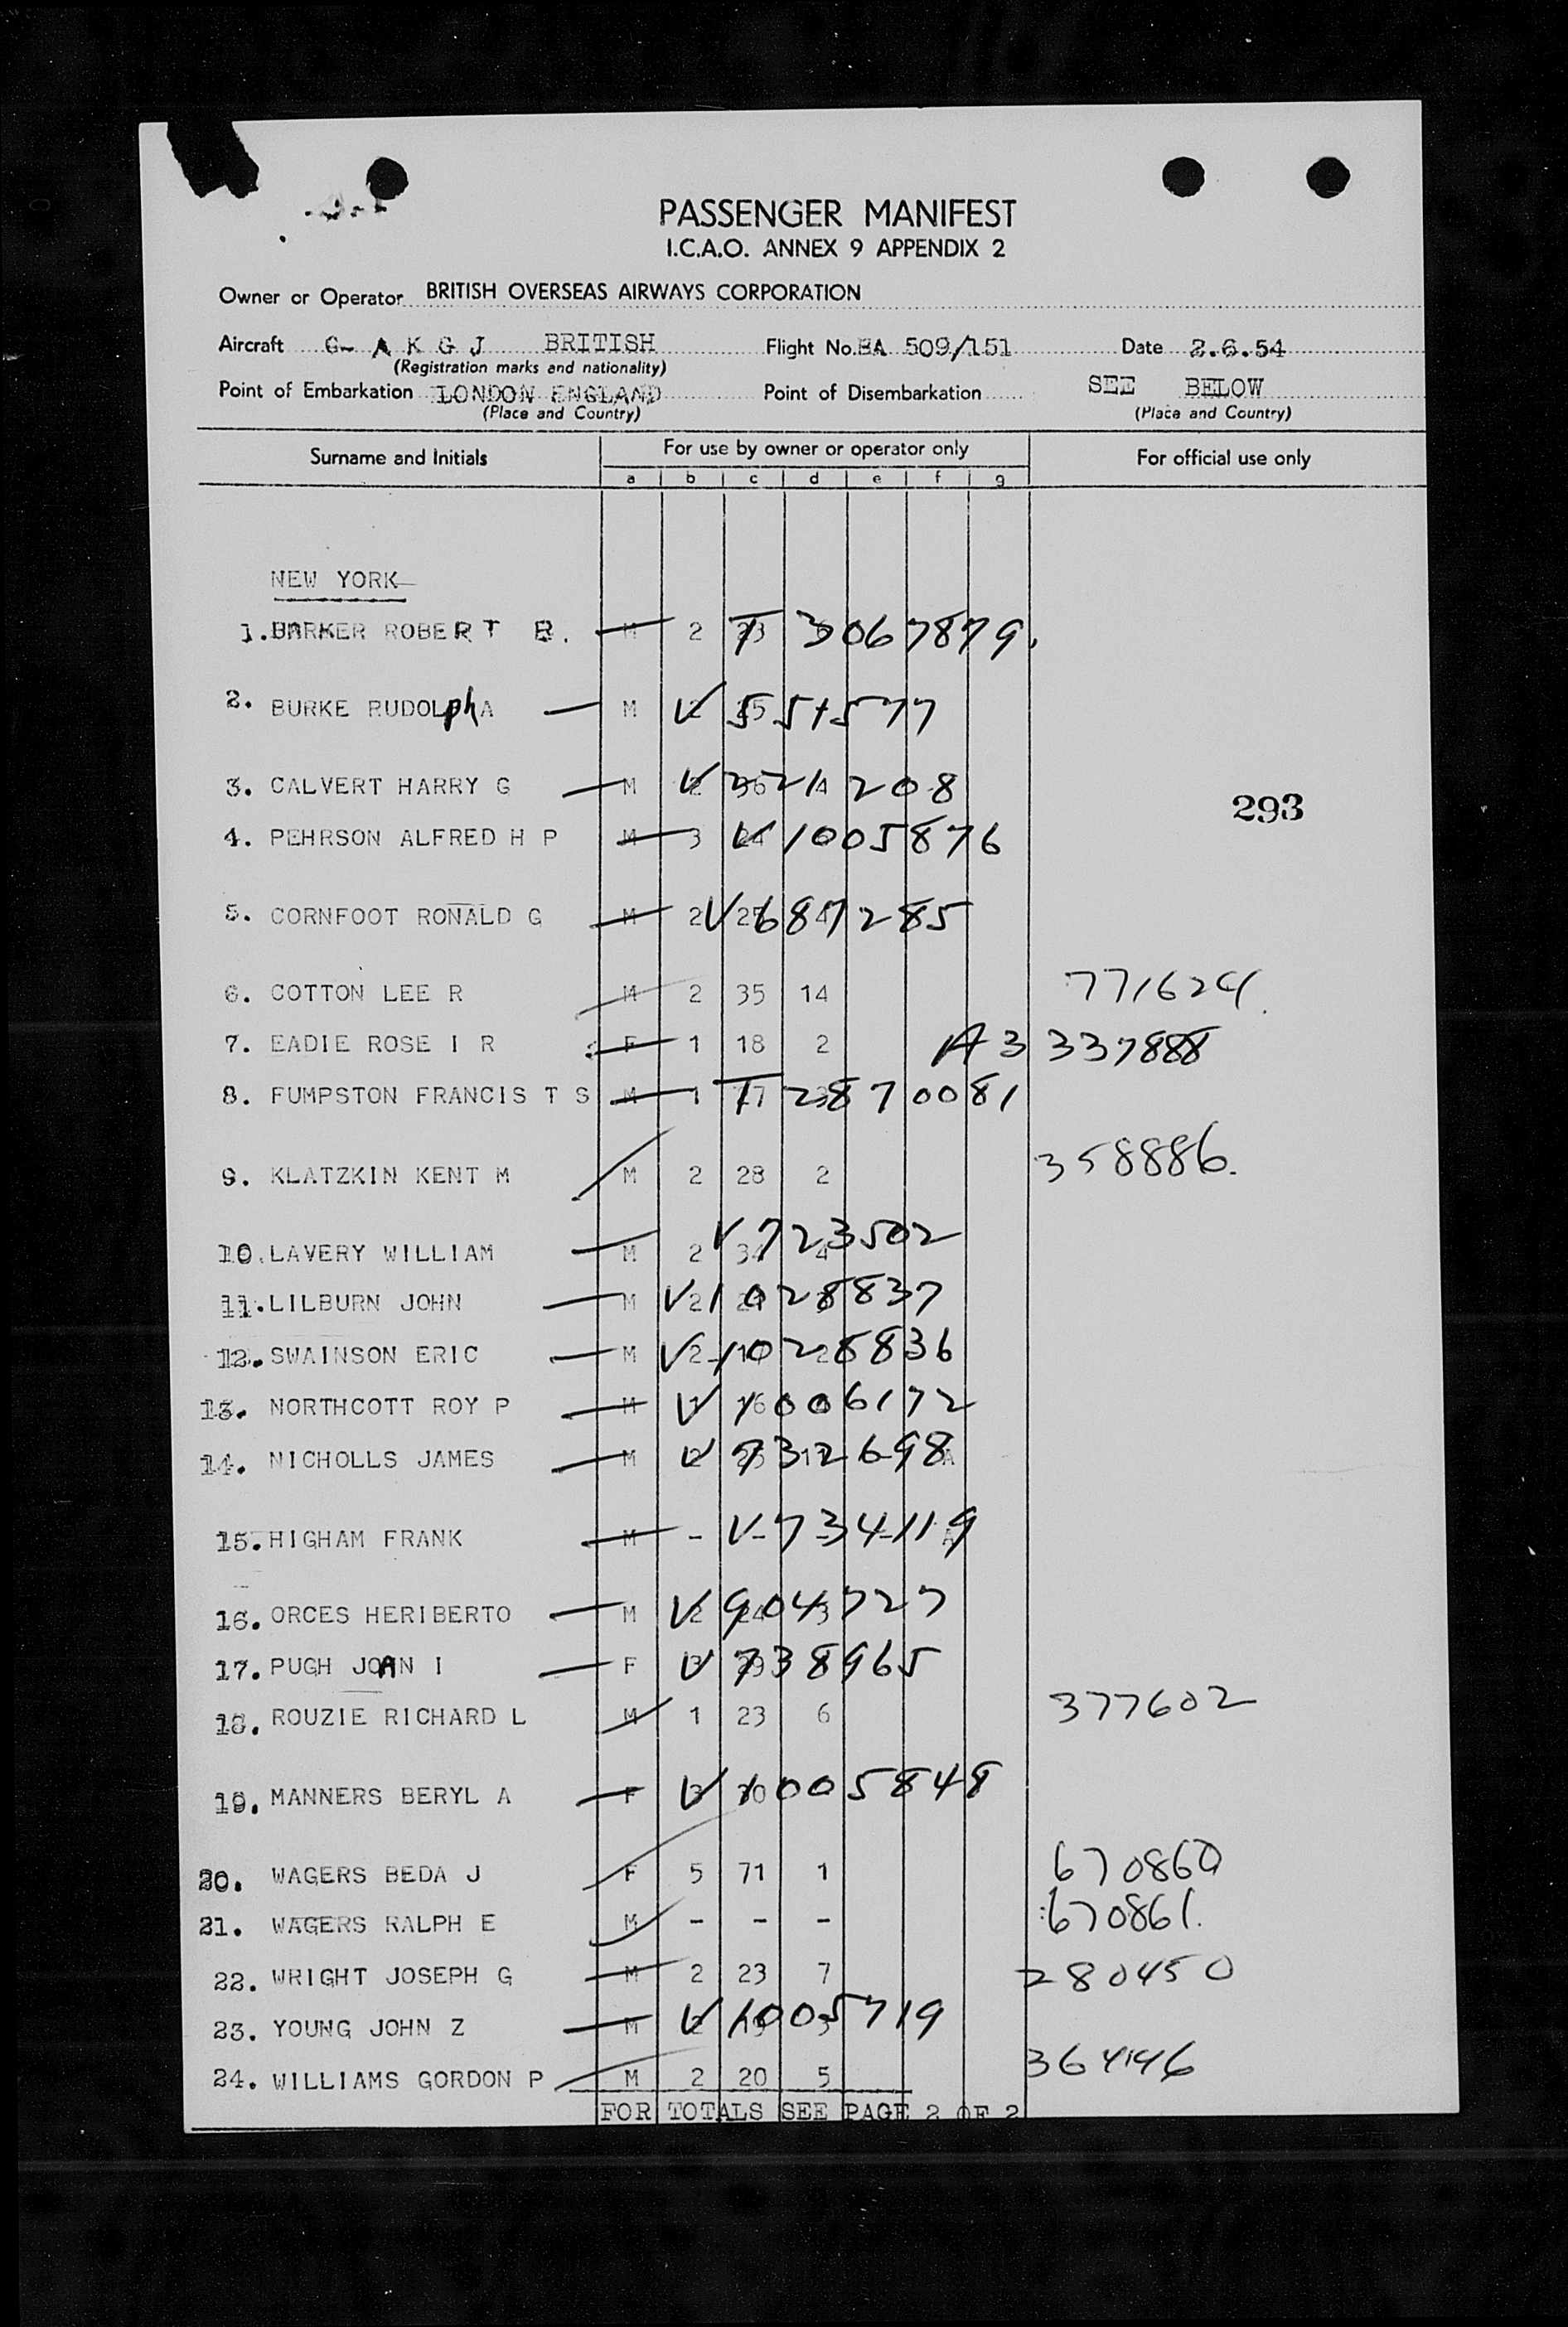 PASSENGER MANIFEST
I.C.A.O. ANNEX 9 APPENDIX 2
Owner or Operator BRITISH OVERSEAS AIRWAYS CORPORATION
Aircraft G- A K G J BRITISH Flight No. BA 509/151 Date 2.6.54
(Registration marks and nationality)
Point of Embarkation LONDON ENGLAND Point of Disembarkation SEE BELOW
(Place and Country) (Place and Country)
Surname and Initials For use by owner or operator only For official use only
a b c d e f g
NEW YORK
1. BARKER ROBERT B. M 2 T 3067879.
2. BURKE RUDOLph A M V 5515777
3. CALVERT HARRY G M V 3521208
293
4. PEHRSON ALFRED H P M 3 V 1005876
5. CORNFOOT RONALD G M 2 V 687285
6. COTTON LEE R M 2 35 14 771624
7. EADIE ROSE I R F 1 18 2 A3 337888
8. FUMPSTON FRANCIS T S M 1 T 2870081
9. KLATZKIN KENT M M 2 28 2 358886.
10. LAVERY WILLIAM M 2 34 4 V 723502
11. LILBURN JOHN M 2 V 1028837
12. SWAINSON ERIC M 2 V 1028836
13. NORTHCOTT ROY P M V 1006172
14. NICHOLLS JAMES M V 7312698 A
15. HIGHAM FRANK M - V - 734119 A
16. ORCES HERIBERTO M 2 24 3 V 904727
17. PUGH JOAN I F V 738965
18. ROUZIE RICHARD L M 1 23 6 377602
19. MANNERS BERYL A F V 1005848
20. WAGERS BEDA J F 5 71 1 670860
21. WAGERS RALPH E M - - - 670861.
22. WRIGHT JOSEPH G M 2 23 7 280450
23. YOUNG JOHN Z M V 1005719
24. WILLIAMS GORDON P M 2 20 5 364146
FOR TOTALS SEE PAGE 2 OF 2